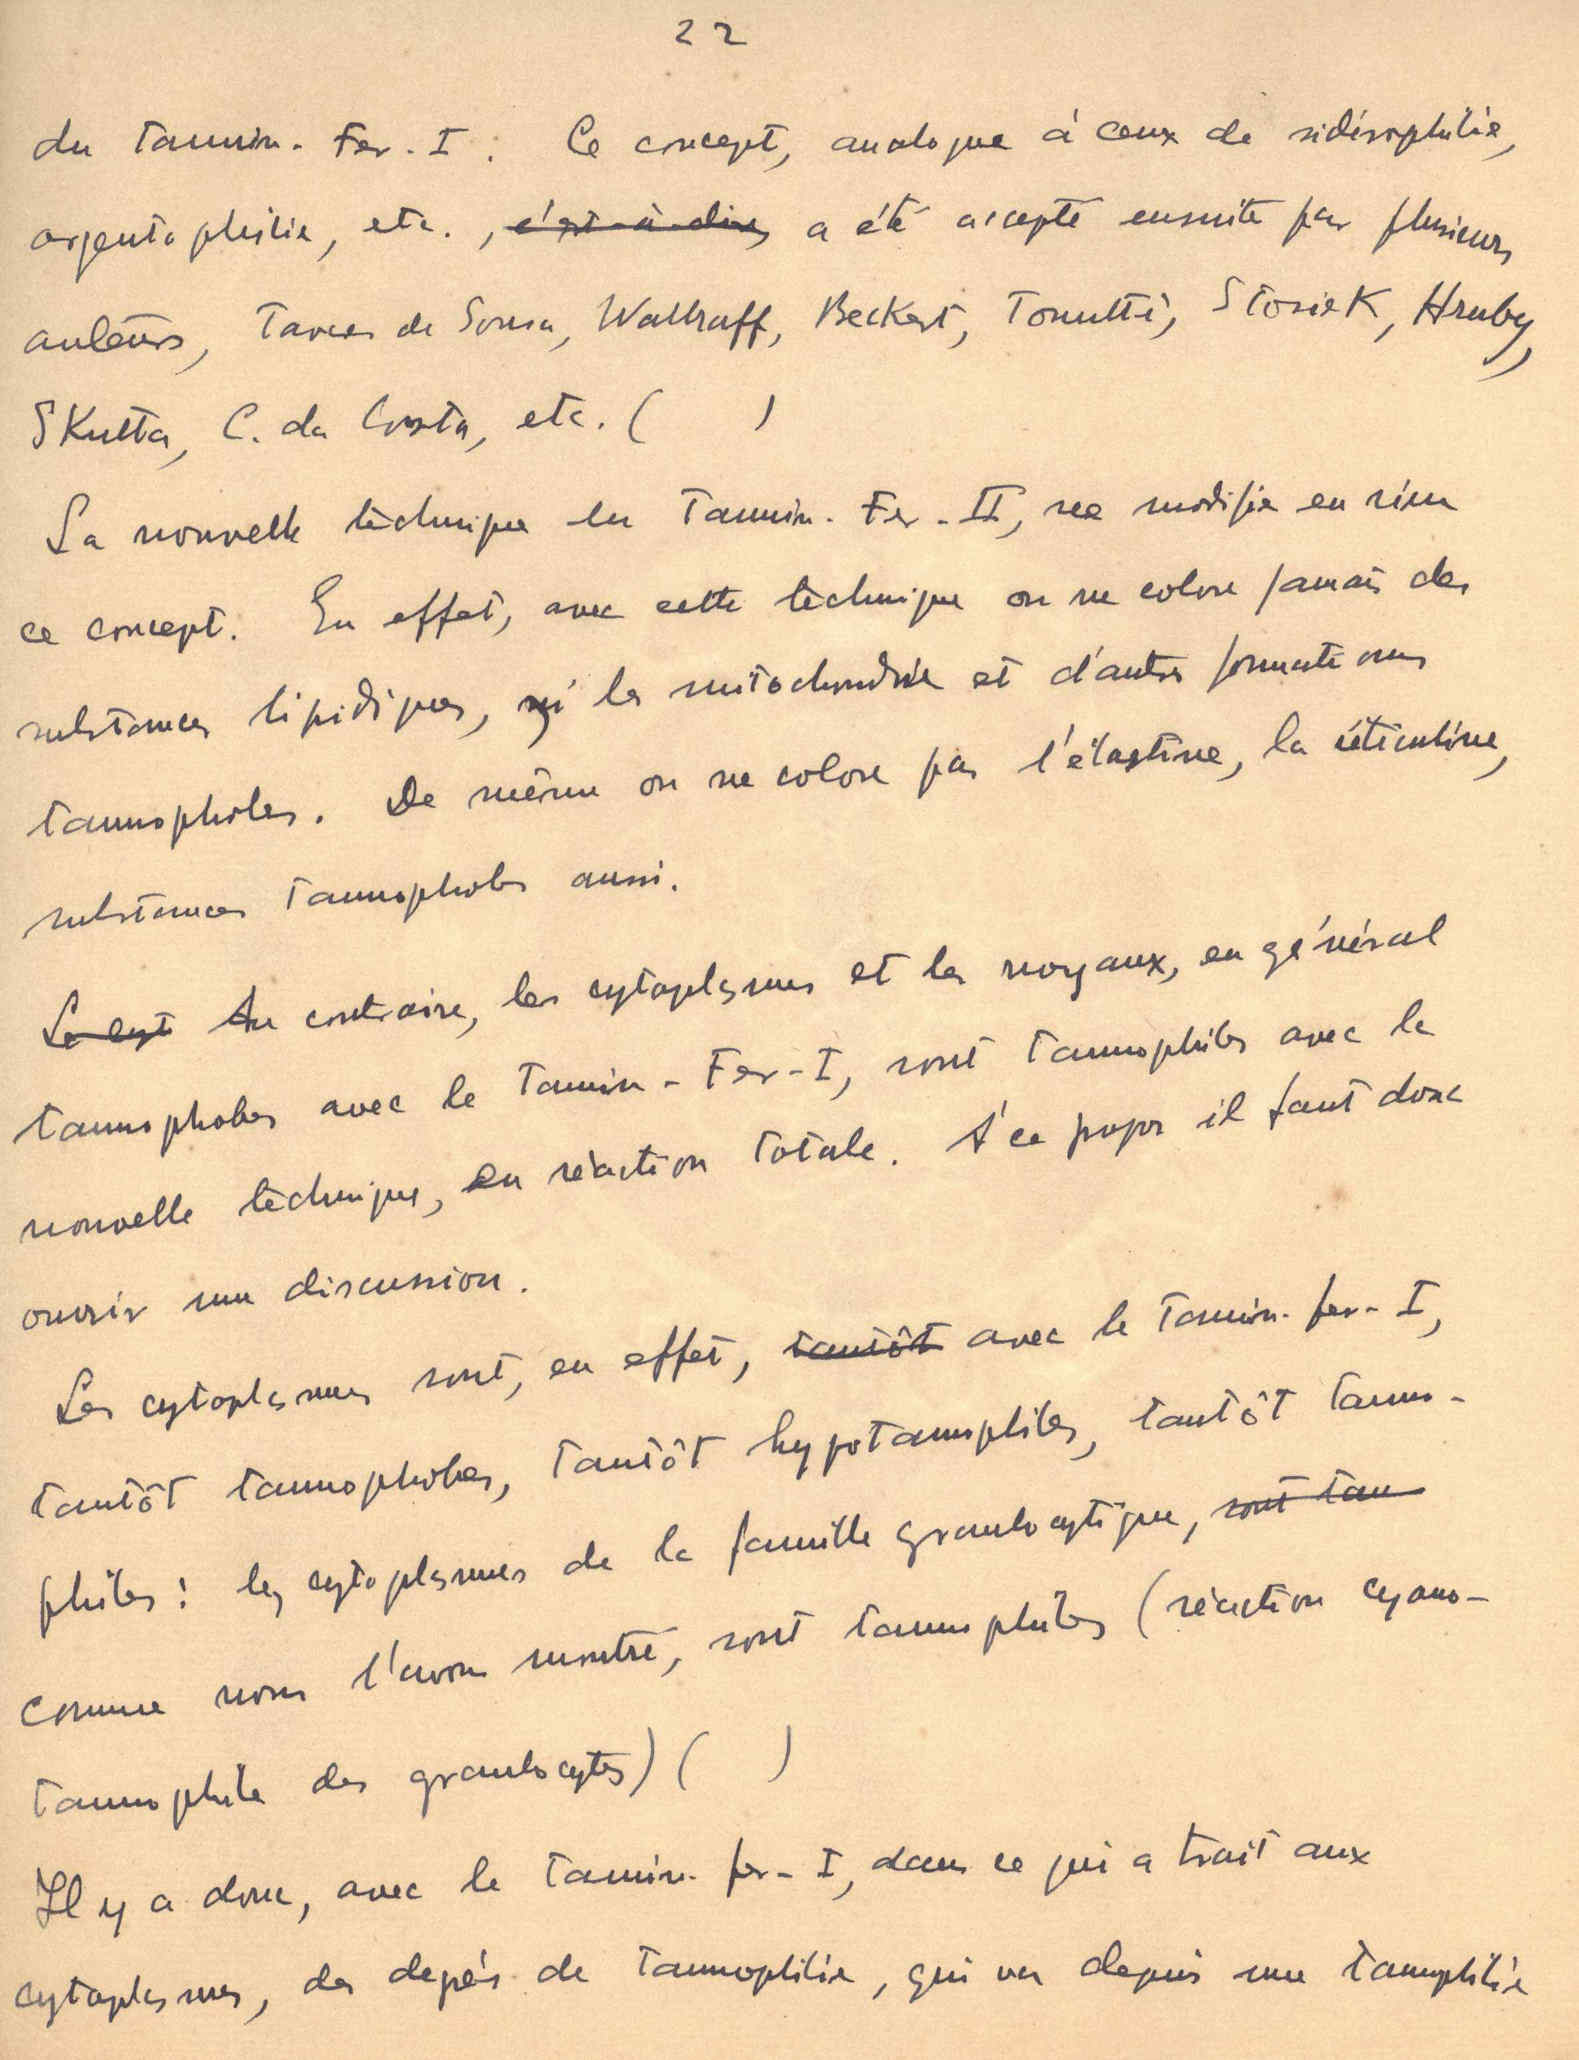 22
du Tannin-Fer-I. Ce concept, analogue à ceux de sidérophilie,
argentophilie, etc., c'est-à-dire, a été accepté ensuite par plusieurs
auteurs, Tavares de Sousa, Wallraff, Beckert, Tonutti, Stosiek, Hruby,
Skutta, C. da Costa, etc. ( )
La nouvelle technique du Tannin-Fer-II, ne modifie en rien
ce concept. En effet, avec cette technique on ne colore jamais des
substances lipidiques, ni les mitochondries et d'autres formations
tannophobes. De même on ne colore pas l'élastine, la réticuline,
substances tannophobes aussi.
Le cyt Au contraire, les cytoplasmes et les noyaux, en général
tannophobes avec le Tannin-Fer-I, sont tannophiles avec la
nouvelle technique, en réaction totale. A ce propos il faut donc
ouvrir une discussion.
Les cytoplasmes sont, en effet, tantôt avec le Tannin-fer-I,
tantôt tannophobes, tantôt hypotannophiles, tantôt tanno-
philes: les cytoplasmes de la famille granulocytique, sont tan
comme nous l'avons montré, sont tannophiles (réaction cyano-
tannophile des granulocytes) ( )
Il y a donc, avec le Tannin-fer-I, dans ce qui a trait aux
cytoplasmes, des degrés de tannophilie, qui va depuis une tannophilie